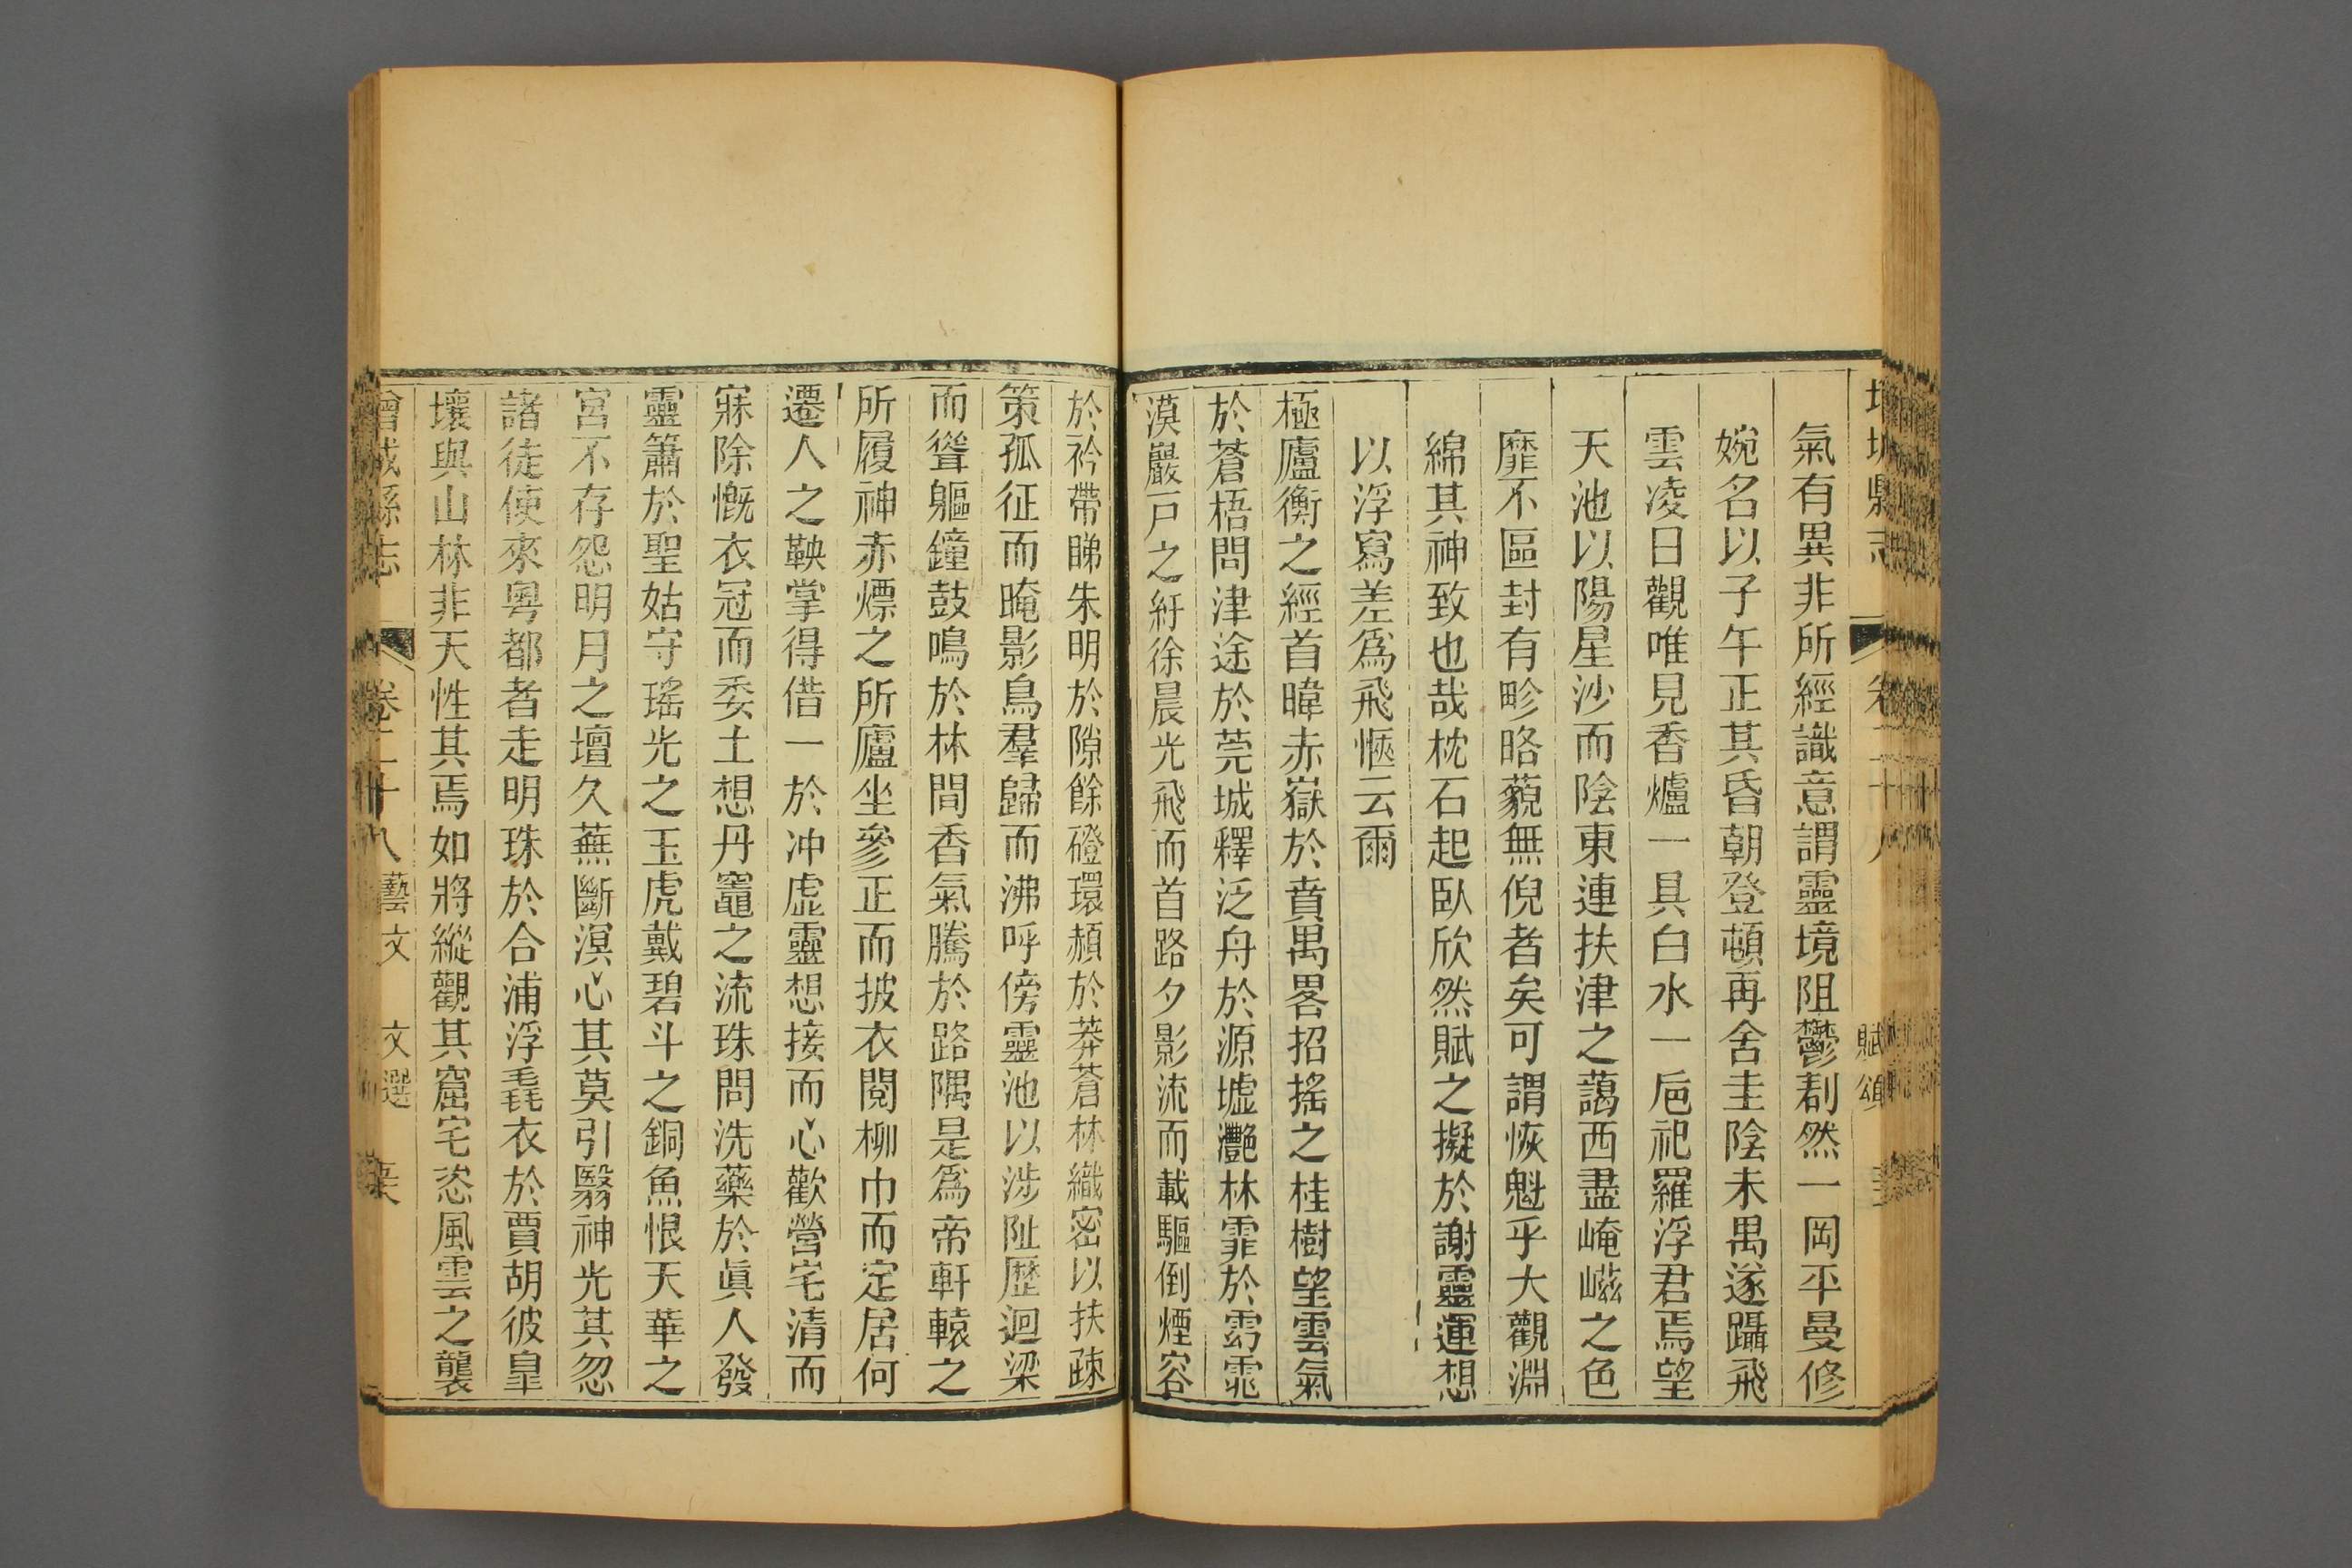 縣志
卷二十八
賦頌
氣有異非所經識意謂靈境阻鬱剨然一岡平曼修
婉名以子午正其昏朝登頓再舍圭陰未禺遂躡飛
雲凌日觀唯見香爐一具白水一巵祀羅浮君焉望
天池以陽星沙而陰東連扶津之藹西盡崦嵫之色
靡不區封有畛略藐無倪者矣可謂恢魁乎大觀淵
綿其神致也哉枕石起臥欣然賦之擬於謝靈運想
以浮寫差爲飛愜云爾
極廬衡之經首暐赤嶽於賁禺畧招搖之桂樹望雲氣
於蒼梧問津途於莞城釋泛舟於源墟灩林霏於雱霐
漠巖戸之紆徐晨光飛而首路夕影流而載驅倒煙容
於衿帶睇朱明於隙餘磴環頳於莽蒼林織密以扶疎
策孤征而晻影鳥羣歸而沸呼傍靈池以涉阯歷迴梁
而聳軀鐘鼓鳴於林間香氣騰於路隅是爲帝軒轅之
所履神赤熛之所廬坐參正而披衣閱柳巾而定居何
遷人之鞅掌得借一於冲虛靈想接而心歡營宅清而
寐除慨衣冠而委土想丹竈之流珠問洗藥於眞人發
靈簫於聖姑守瑤光之玉虎戴碧斗之銅魚恨天華之
宮不存怨明月之壇久蕪斷溟心其莫引翳神光其忽
諸徒使來粤都者走明珠於合浦浮毳衣於賈胡彼皇
壤與山林非天性其焉如將縱觀其窟宅恣風雲之襲
增城縣志
卷二十八
藝文
文選